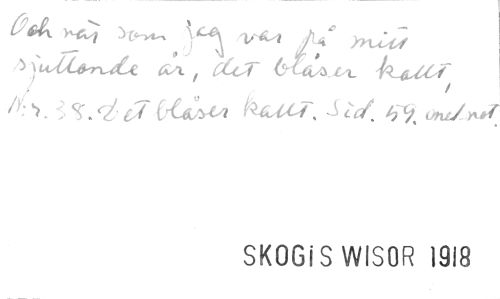 Och när som jag var på mitt
sjuttonde år, det blåser kallt,
Nr. 38. Det blåser kallt. Sid. 59. med not.
SKOGiS WISOR 1918